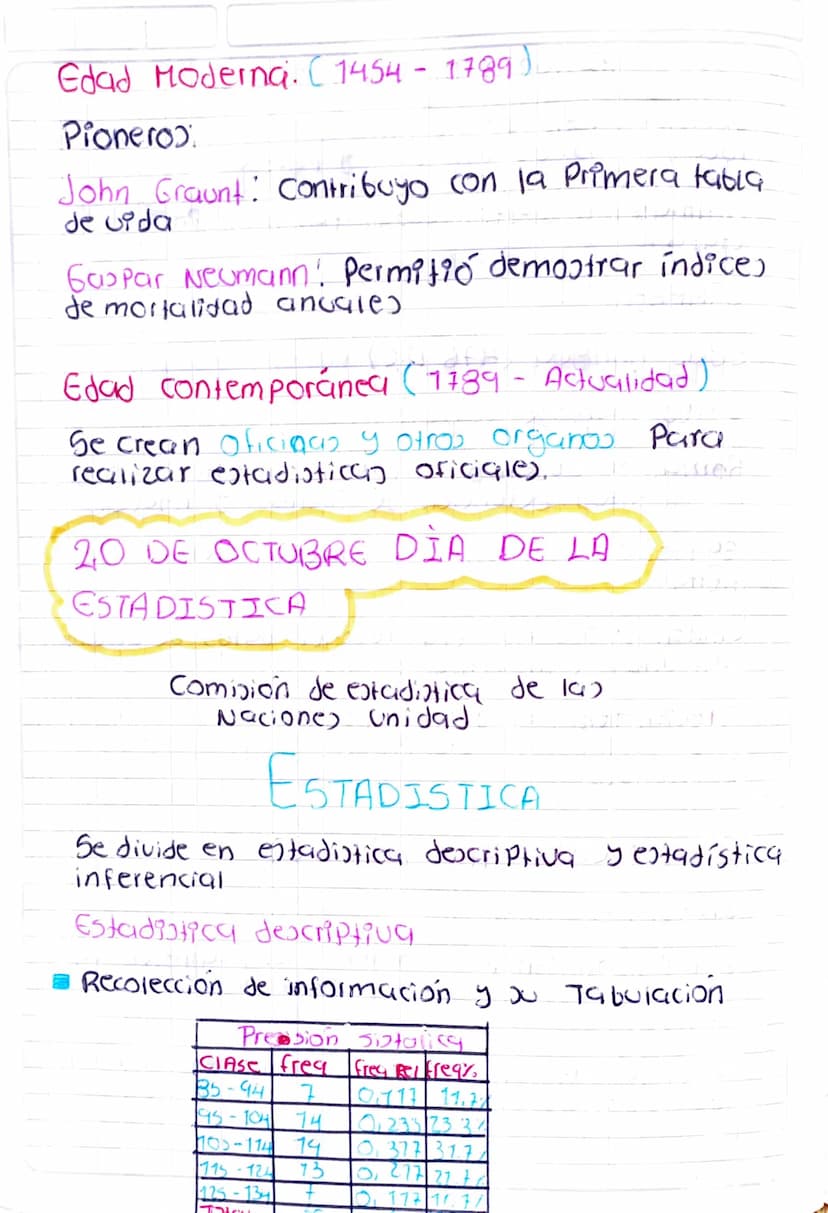 Edad Moderna. (1454 - 1789)
Pioneros:
John Graunt: Contribuyo con la Primera tabla
de vida
Gaspar Neumann: Permitió demostrar índices
de mortalidad anuales
Edad contemporánea (1789 - Actualidad)
Se crean oficinas y otros organos Para
realizar estadisticas oficiales.
20 DE OCTUBRE DÌA DE LA
ESTADISTICA
Comisión de estadistica de las
Naciones unidad
ESTADISTICA
Se divide en estadistica descriptiva y estadística
inferencial
Estadistica descriptiva
Recolección de información y su Tabulación
Presion sistolica
Clase freq freq Rel freq%
85 - 94 7 0,117 11.7%
95 - 104 14 0,233 23.3%
105 - 114 19 0,317 31.7%
115 - 124 13 0,217 21.7%
125 - 134 7 0,117 11.7%